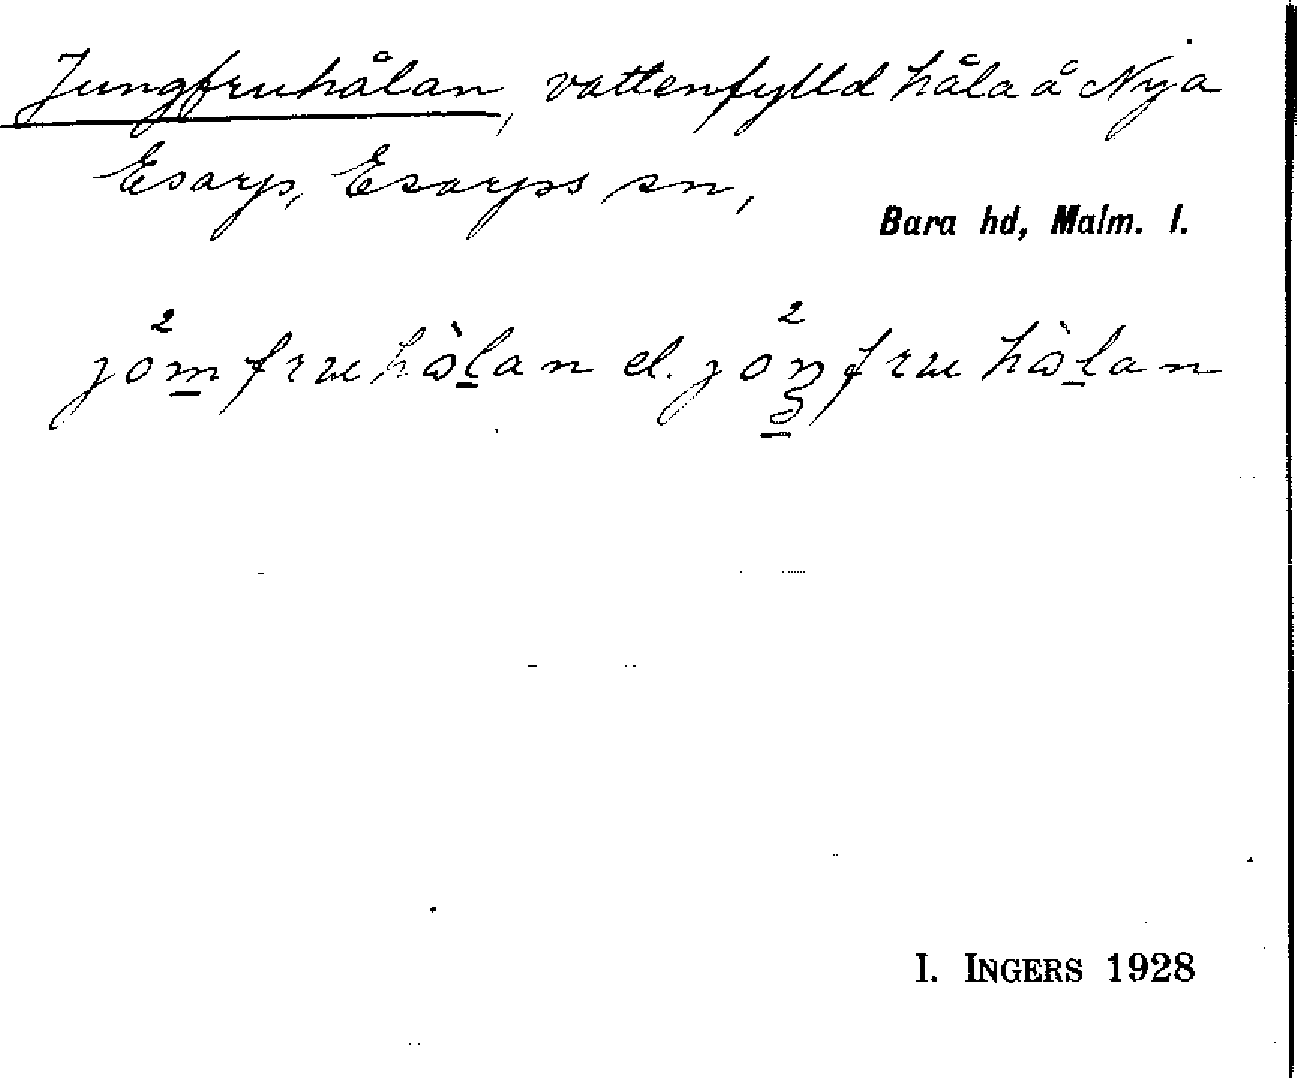 Jungfruhålan, vattenfylld håla å Nya
Esarp, Esarps sn,
Bara hd, Malm. l.
jo²m̲fruhòl̲an el. jo²ŋ̲fruhòl̲an
I. INGERS 1928